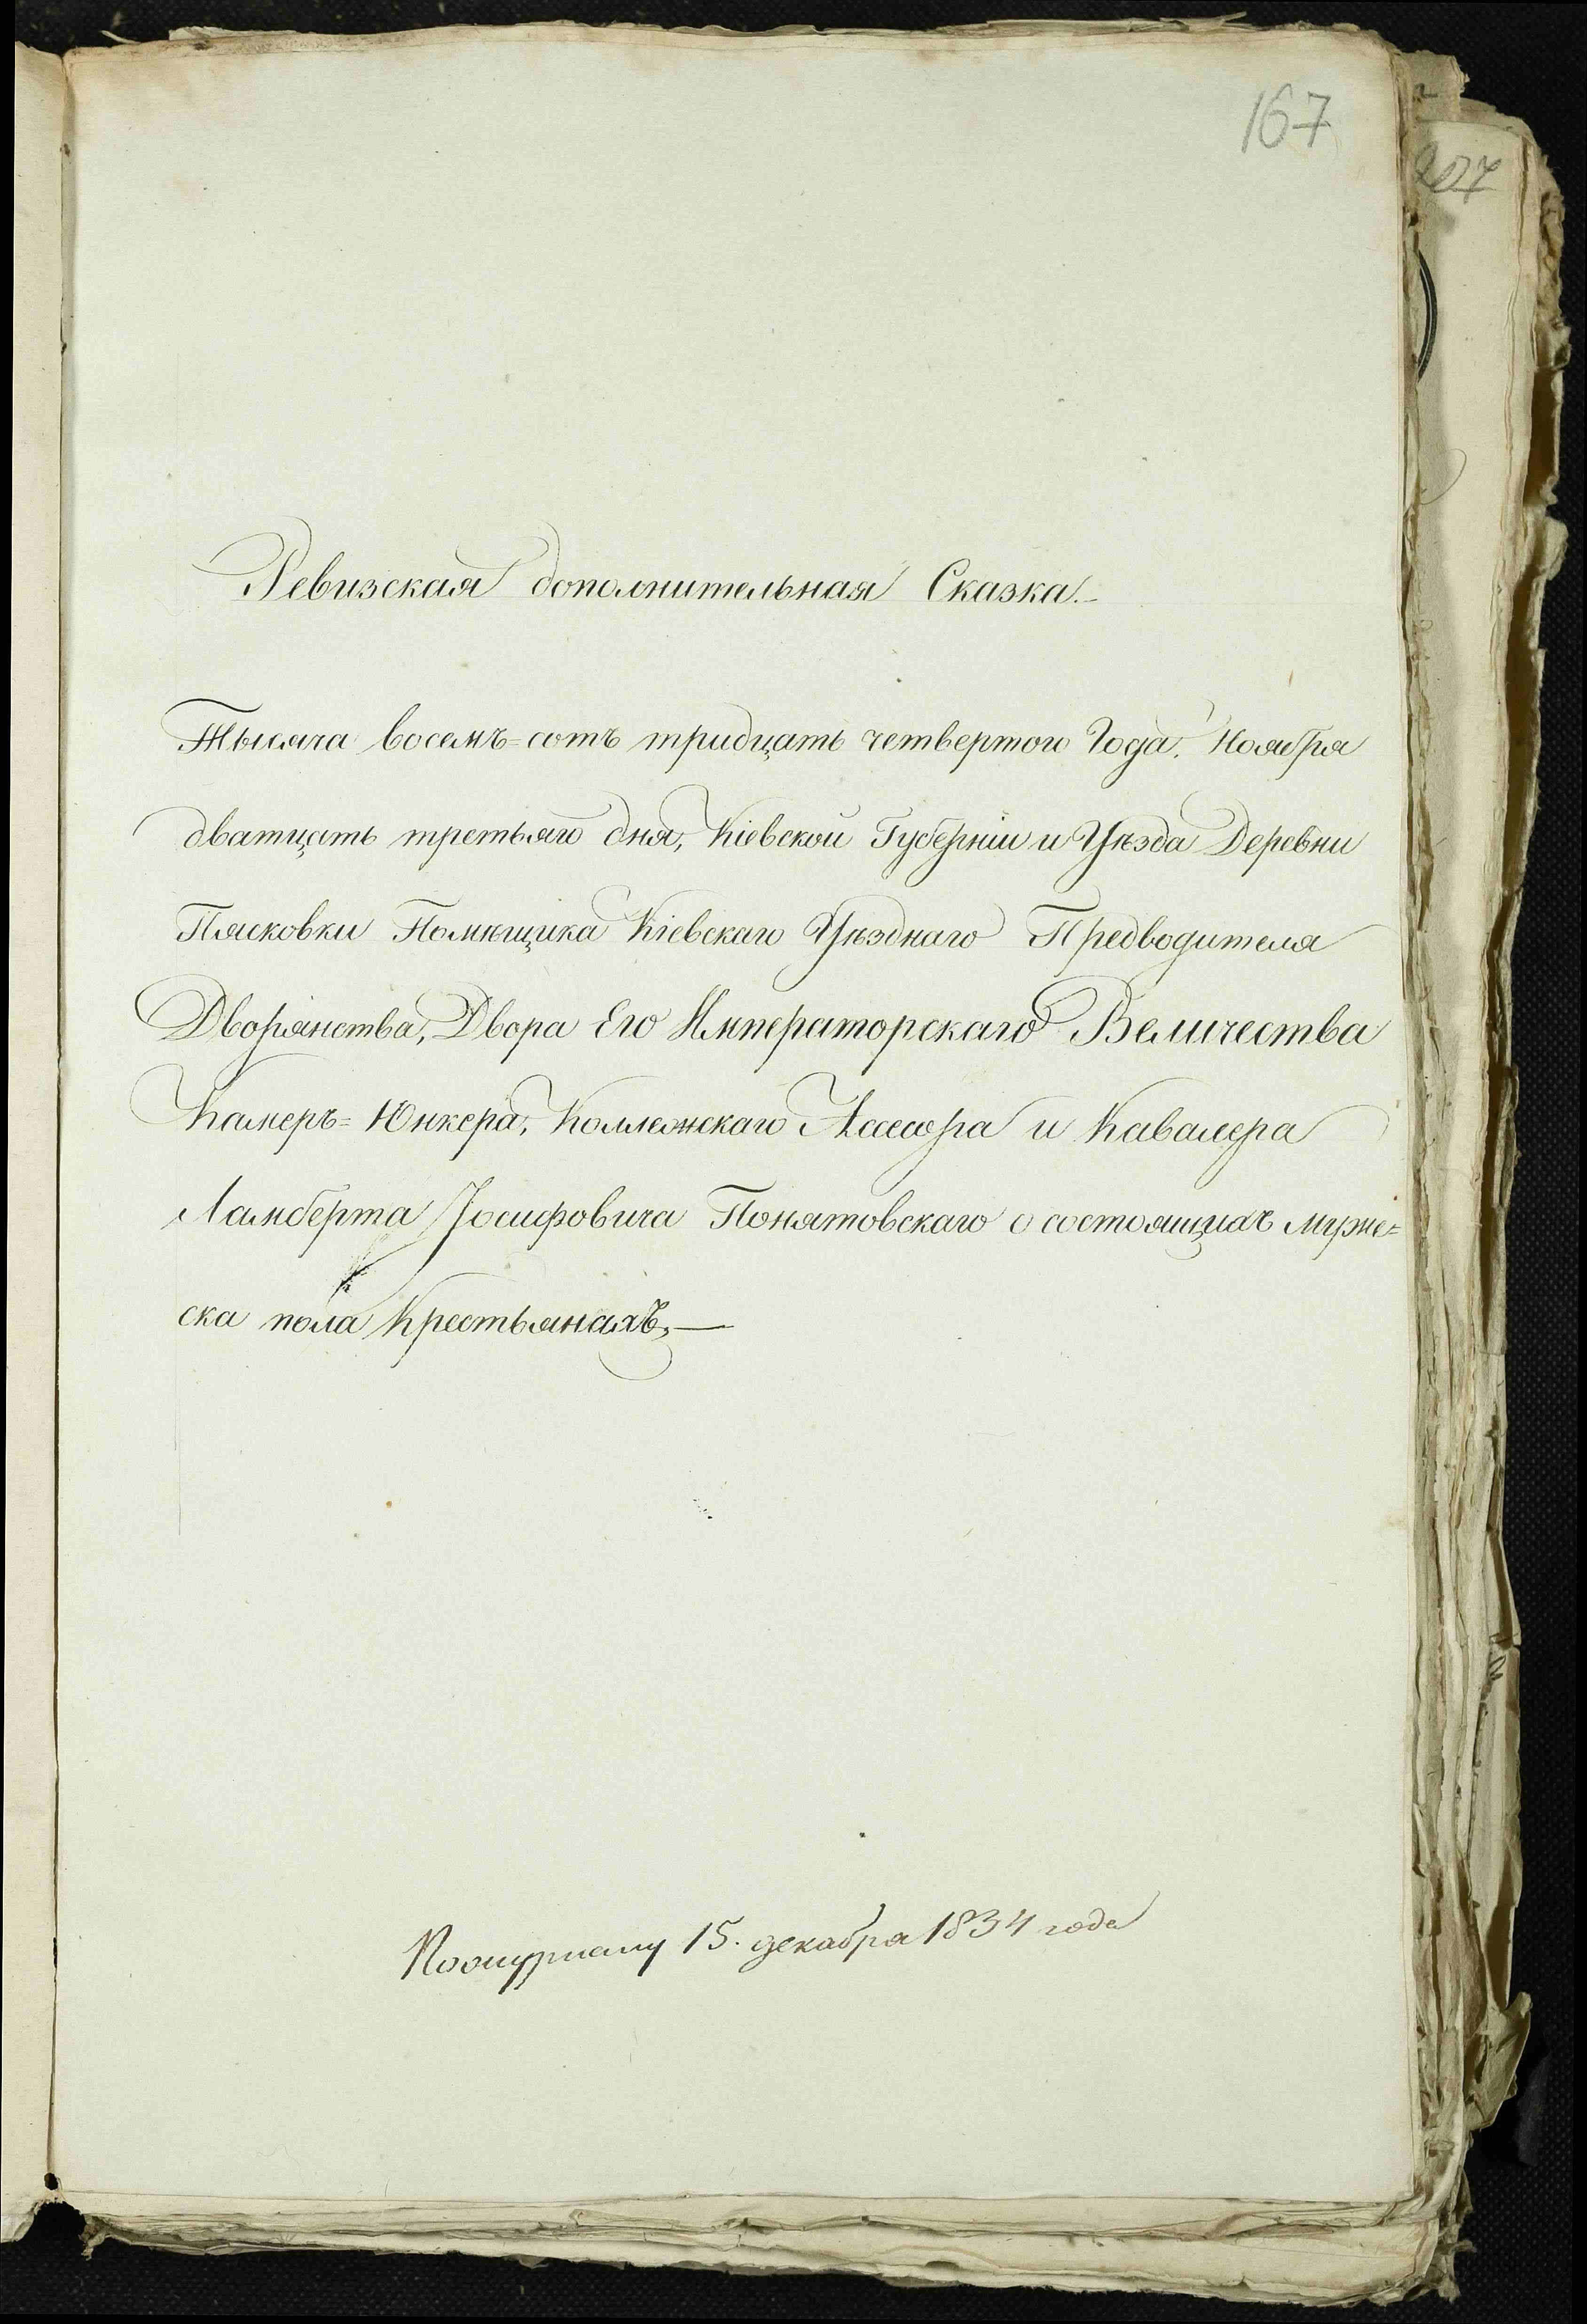 167
207
Ревизская дополнительная Сказка.
Тысяча восемъ=сотъ тридцать четвертого Года. Ноября
дватцать третьяго дня, Кіевской Губерніи и Уѣзда Деревни
Пясковки Помѣщика Кіевскаго Уѣзднаго Предводителя
Дворянства, Двора Его Императорскаго Величества
Камеръ=Юнкера, Коллежскаго Ассесора и Кавалера
Ламберта Іосифовича Понятовскаго о состоящихъ муже=
ска пола Крестьянахъ,—
15. декабря 1834 года